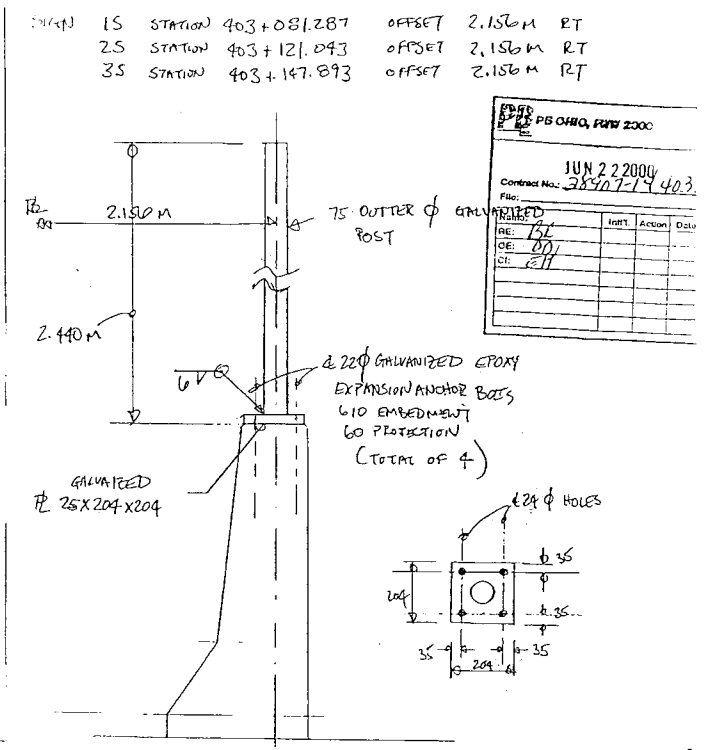 SIGN 1S STATION 403+081.287 OFFSET 2.156 M RT
2S STATION 403+121.043 OFFSET 2.156 M RT
3S STATION 403+147.893 OFFSET 2.156 M RT
PB OHIO,
JUN 22 2000
Contract No.: 28907-14 403.
File:
Name: Init'l. Action Date
RE:
OE:
CI:
2.156 M
75 OUTTER φ GALVANIZED
POST
2.440 M
6
℄ 22φ GALVANIZED EPOXY
EXPANSION ANCHOR BOTS
610 EMBEDMENT
60 PROTECTION
(TOTAL OF 4)
GALVAIZED
PL 25X204X204
℄ 24 φ HOLES
35
204
35
35 204 35